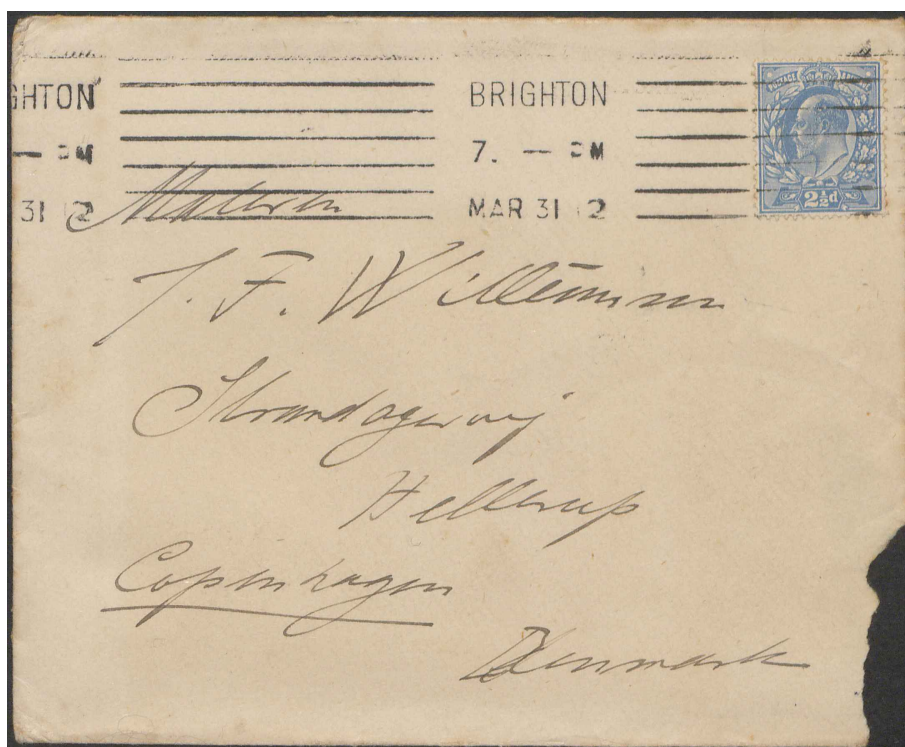 GHTON
PM
31 12
BRIGHTON
7. — PM
MAR 31 12
POSTAGE
2½d
Maleren
J. F. Willumsen
Strandagervej
Hellerup
Copenhagen
Denmark